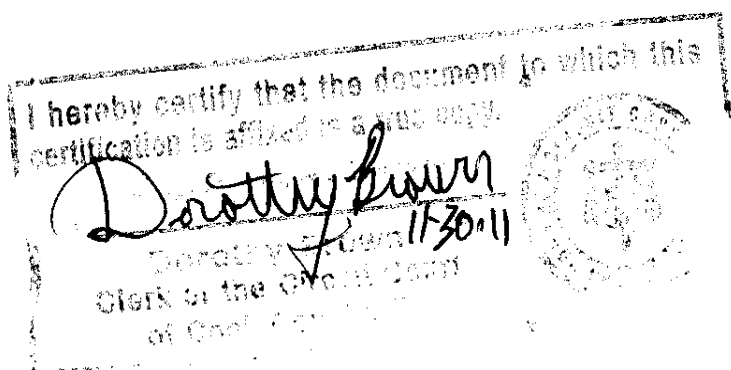 I hereby certify that the document to which this
certification is affixed is a true copy.
Dorothy Brown
11-30-11
Dorothy Brown
Clerk of the Circuit Court
of Cook